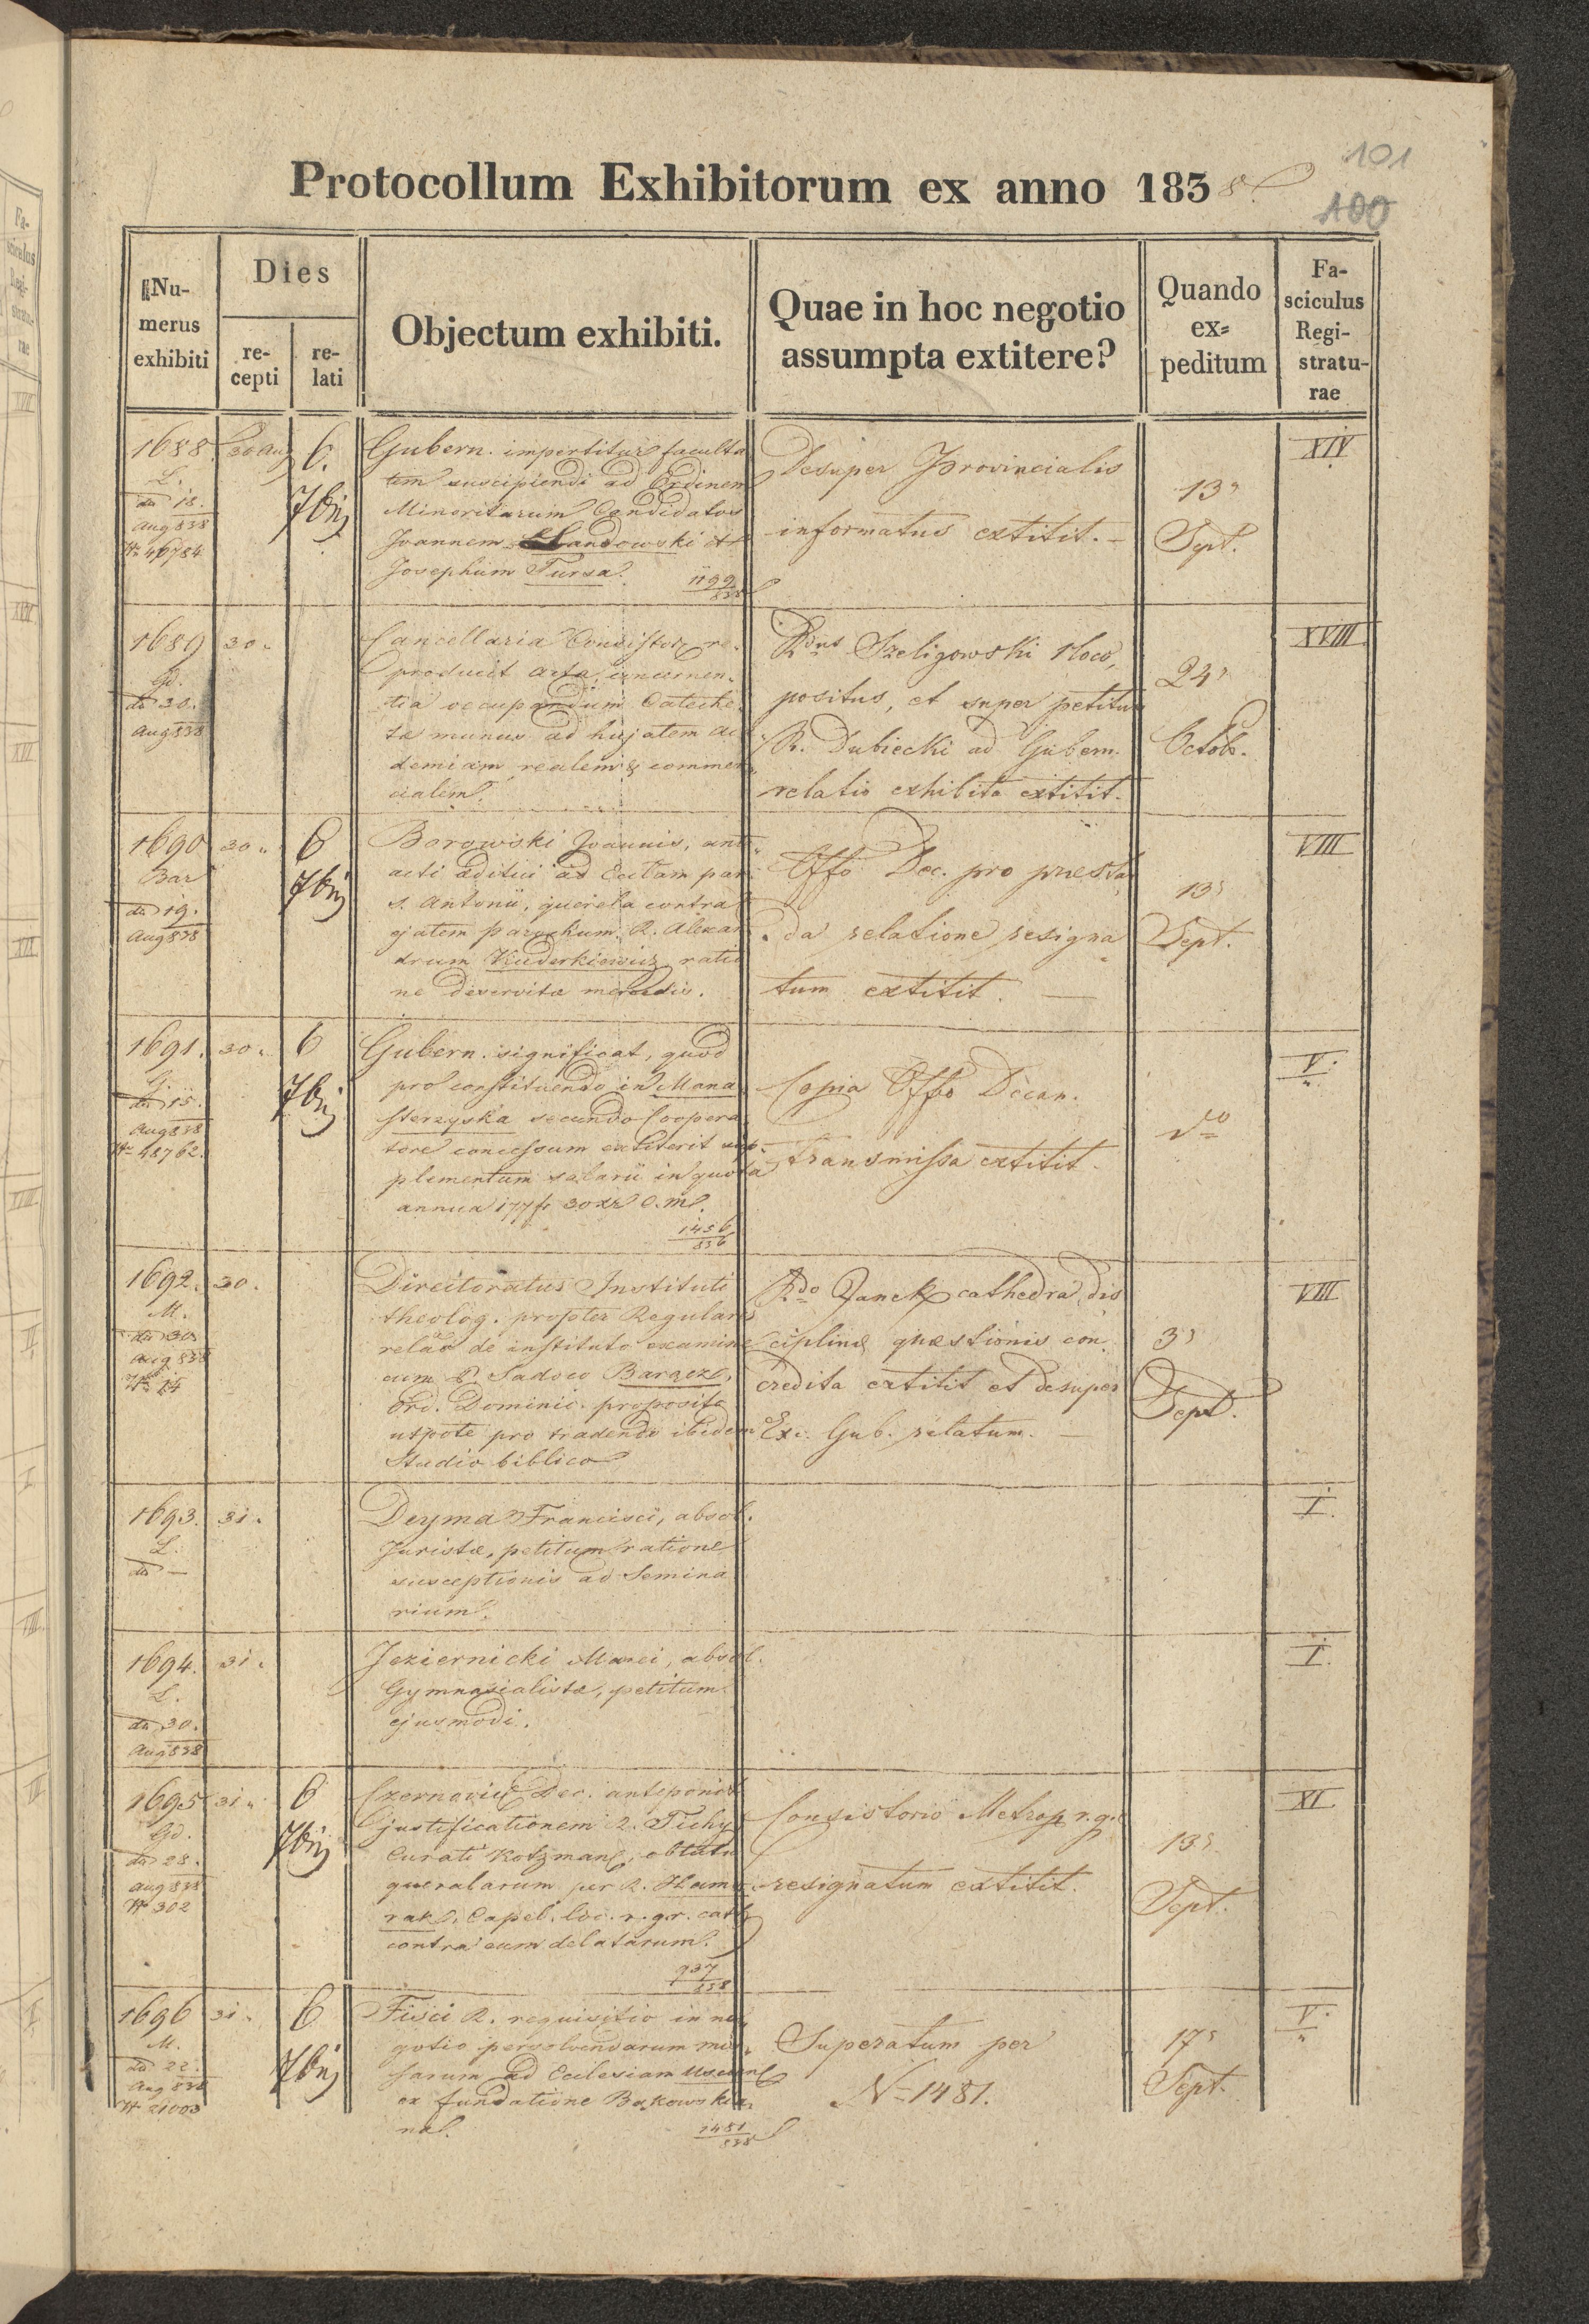 101
100
Protocollum Exhibitorum ex anno 1838
Numerus exhibiti
Dies
recepti
relati
Objectum exhibiti.
Quae in hoc negotio assumpta extitere?
Quando ex=peditum
Fasciculus Registraturae
1688.
L.
dt 18.
Aug 838
Nr 46784
30 Aug
6.
7bris
Gubern. impertitur faculta
tem suscipiendi ad Ordinem
Minoritarum Candidatos
Joannem Landowski et
Josephum Tursa.
1199
838
Desuper Provincialis
informatus extitit. —
13
Sept.
XIV
1689
Gd.
dt 30.
Aug 838
30.
Cancellaria Consistor. re-
producit acta concernen-
tia occupandum Cateche-
tae munus ad hujatem aca
demiam realem & commer
cialem.
Rdus Szeligowski 1 loco,
positus, et super petitum
R. Dubiecki ad Gubern.
relatio exhibita extitit.
24
Octob.
XVIII
1690
Bar
dt 19.
Aug 838
30.
6
7bris
Borowski Joannis, ant-
acti aditui ad Ecclam par.
s. Antonii, querela contra
ejatem parochum R. Alexan
drum Kuderkiewicz ratio
ne deservitae mercedis.
Offo Dec. pro praestan
da relatione resigna
tum extitit. —
13
Sept.
VIII
1691.
G.
dt 15.
Aug 838
Nr 48762.
30.
6
7bris
Gubern. significat, quod
pro constituendo in Mona
sterzyska secundo Coopera
tore concessum extiterit sup-
plementum salarii in quota
annua 177 fr 30 xr C.M.
1456
836
Copia Offo Decan.
transmissa extitit.
do
V.
1692.
M.
dt 30
Aug 838
Nr 14
30.
Directoratus Instituti
theolog. propter Regulares
relao de instituto examine
cum P. Sadoco Baracz,
Ord. Dominic. proposito
utpote pro tradendo ibidem
Studio biblico
Rdo Janek cathedra dis
ciplinae quaestionis con-
credita extitit et desuper
Exc. Gub. relatum. —
3
Sept.
VIII
1693.
L.
dt —
31.
Deyma Francisci, absol.
Juristae, petitum ratione
susceptionis ad Semina
rium.
I.
1694.
L.
dt 30.
Aug 838
31.
Jeziernicki Marci, absol.
Gymnasialistae, petitum
ejusmodi.
I.
1695
Gd.
dt 28.
Aug 838
Nr 302
31.
6
7bris
Czernovic Dec. anteponit
justificationem R. Tichy
Curati Kotzman, obtutu
querelarum per R. Ham
rak, Capel. loc. r. gr. cath
contra eum delatarum.
937
838
Consistorio Metrop r. g. c
resignatum extitit.
13
Sept.
XI
1696
M.
dt 22.
Aug 838
Nr 21003
31.
6
7bris
Fisci R. requisitio in ne-
gotio persolvendarum mis-
sarum ad Ecclesiam
ex fundatione Bakowskia
na.
1481
838
Superatum per
N- 1481.
17
Sept.
V.